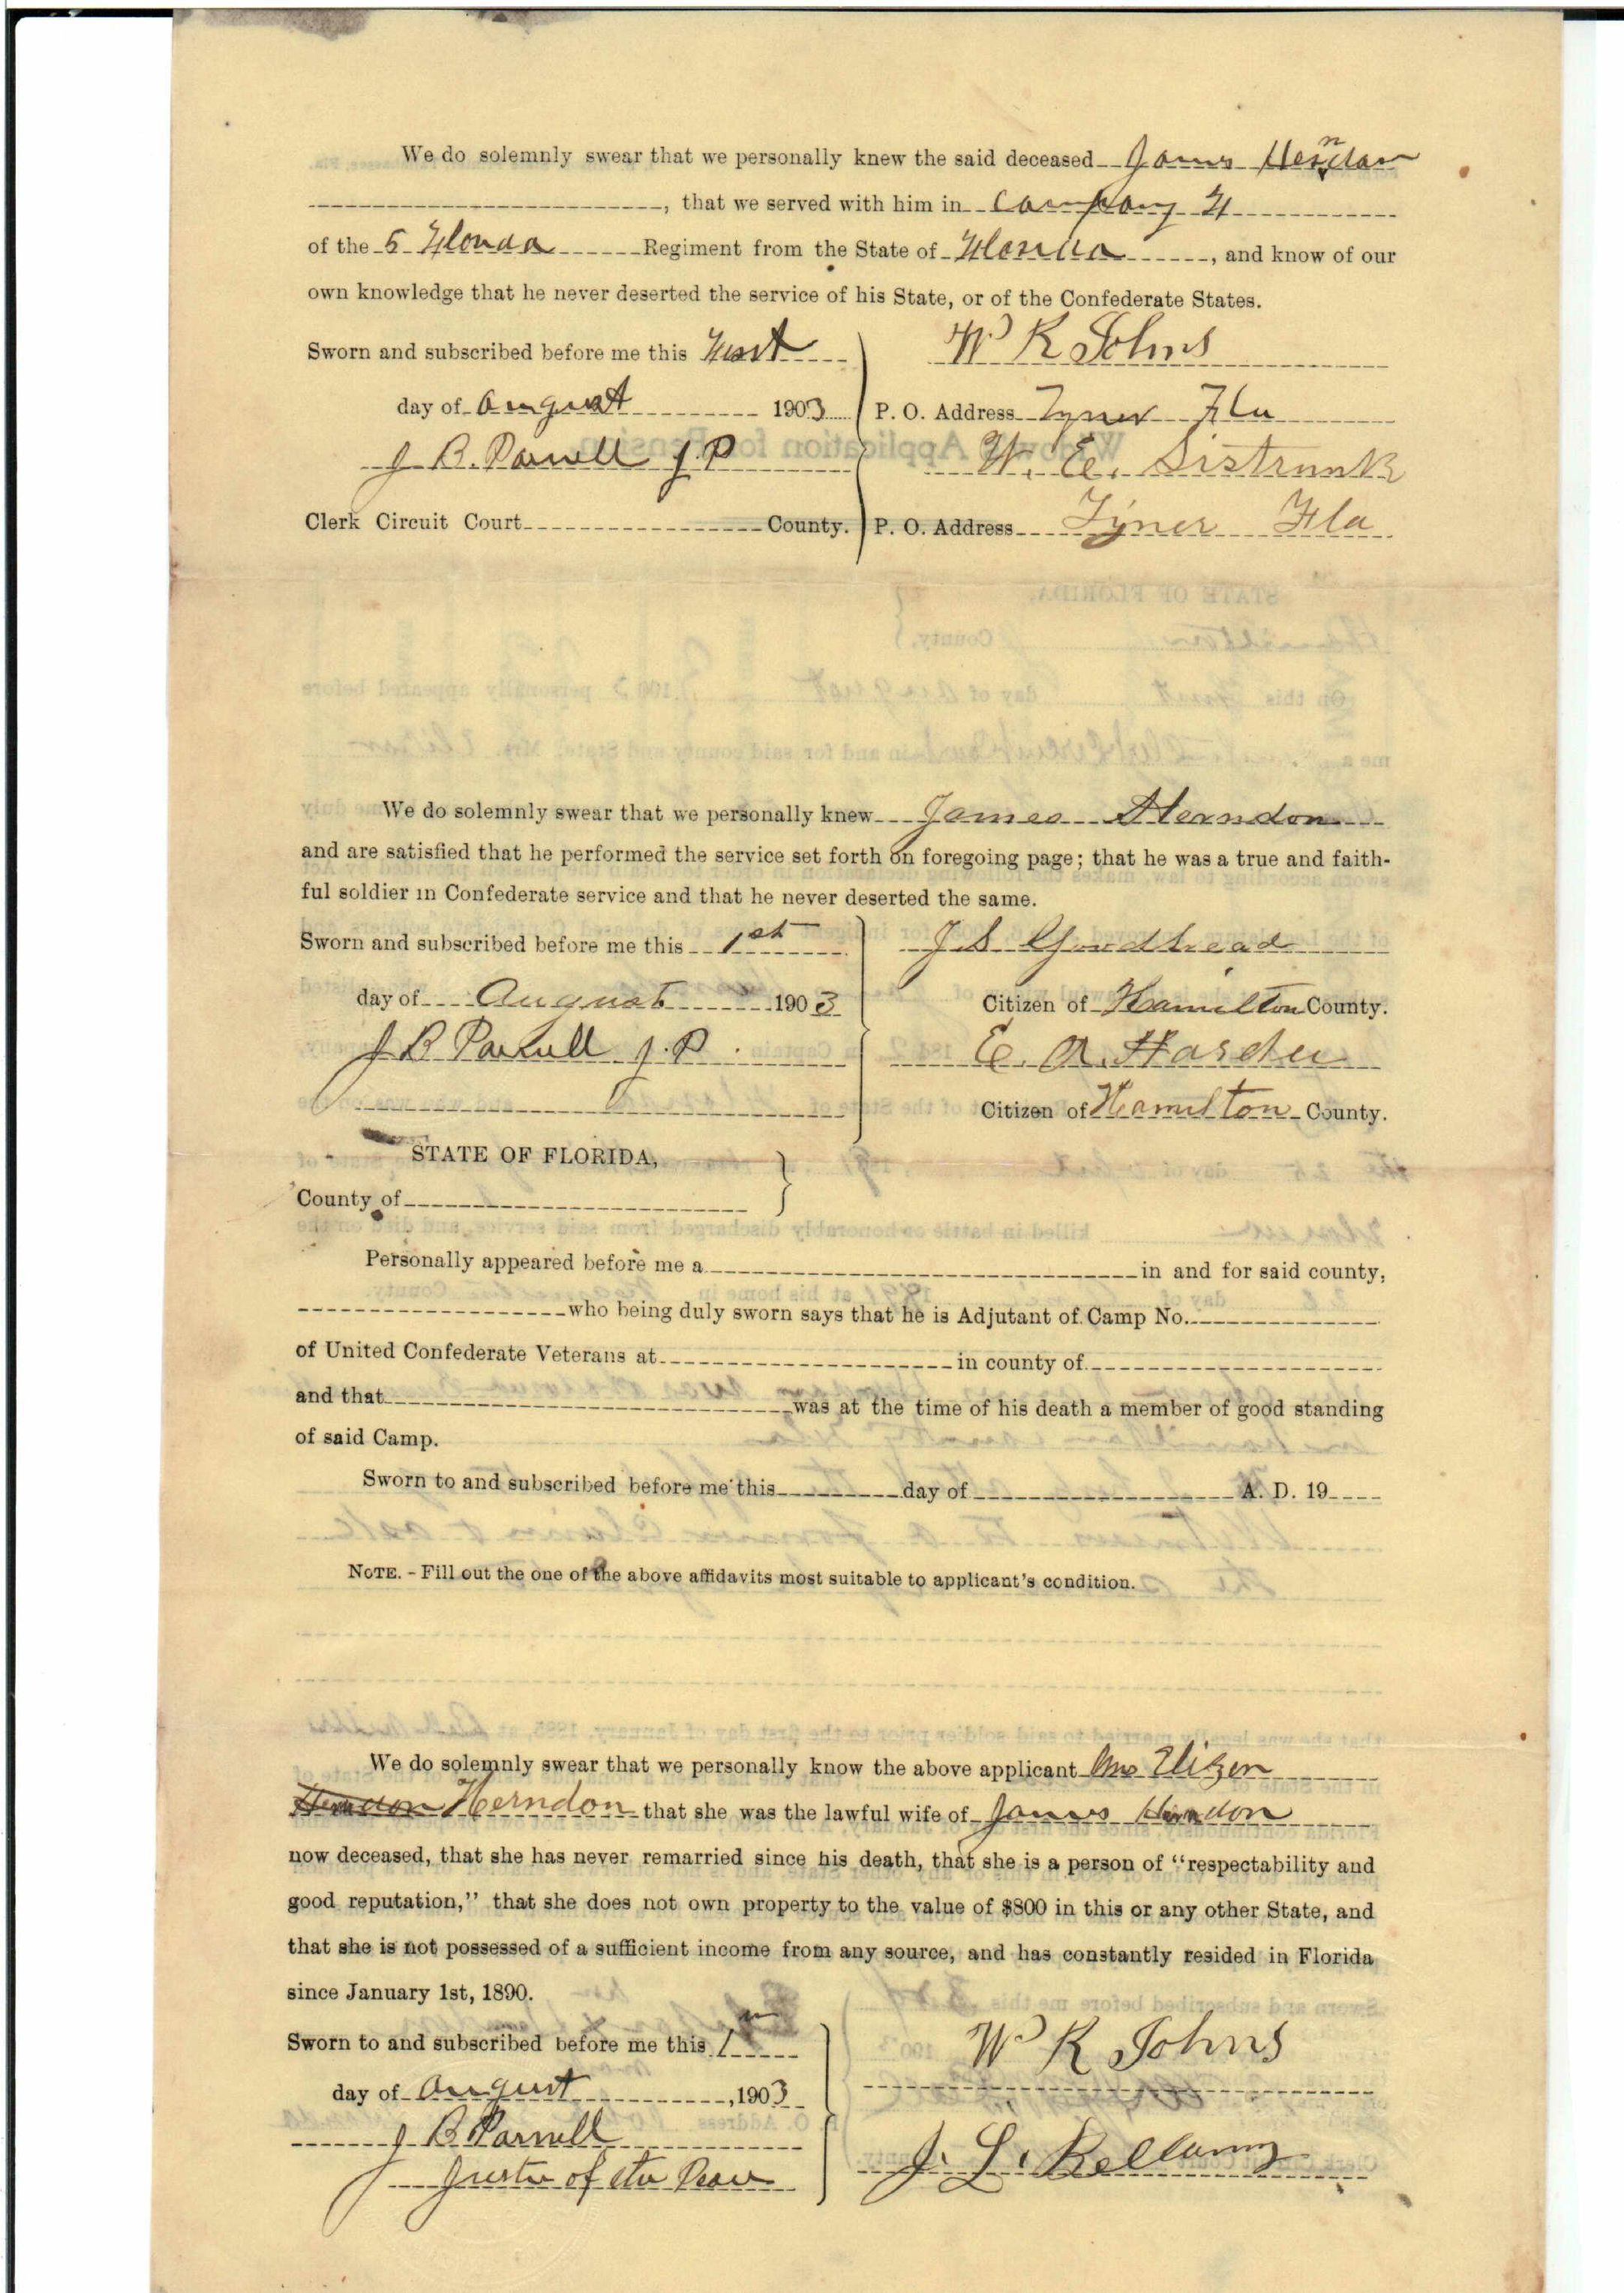 We do solemnly swear that we personally knew the said deceased James Herndon
, that we served with him in Company
of the 5 Florida Regiment from the State of Florida, and know of our
own knowledge that he never deserted the service of his State, or of the Confederate States.
Sworn and subscribed before me this First
W R Johns
day of August 1903
P. O. Address Tyner Fla
J B. Parnell J. P
W. E. Sistrunk
Clerk Circuit Court County.
P. O. Address Tyner Fla
We do solemnly swear that we personally knew James Herndon
and are satisfied that he performed the service set forth on foregoing page; that he was a true and faith-
ful soldier in Confederate service and that he never deserted the same.
Sworn and subscribed before me this 1st
J S Goodbread
day of August 1903
Citizen of Hamilton County.
J B Parnell J. P.
E. A.
Citizen of Hamilton County.
STATE OF FLORIDA,
County of
Personally appeared before me a in and for said county,
who being duly sworn says that he is Adjutant of Camp No.
of United Confederate Veterans at in county of
and that was at the time of his death a member of good standing
of said Camp.
Sworn to and subscribed before me this day of A. D. 19
NOTE. - Fill out the one of the above affidavits most suitable to applicant's condition.
We do solemnly swear that we personally know the above applicant Mrs Elizen
Herndon Herndon that she was the lawful wife of James Herndon
now deceased, that she has never remarried since his death, that she is a person of "respectability and
good reputation," that she does not own property to the value of $800 in this or any other State, and
that she is not possessed of a sufficient income from any source, and has constantly resided in Florida
since January 1st, 1890.
Sworn to and subscribed before me this 1
W R Johns
day of August, 1903
J B Parnell
J. L. Bellamy
Justice of the Peace